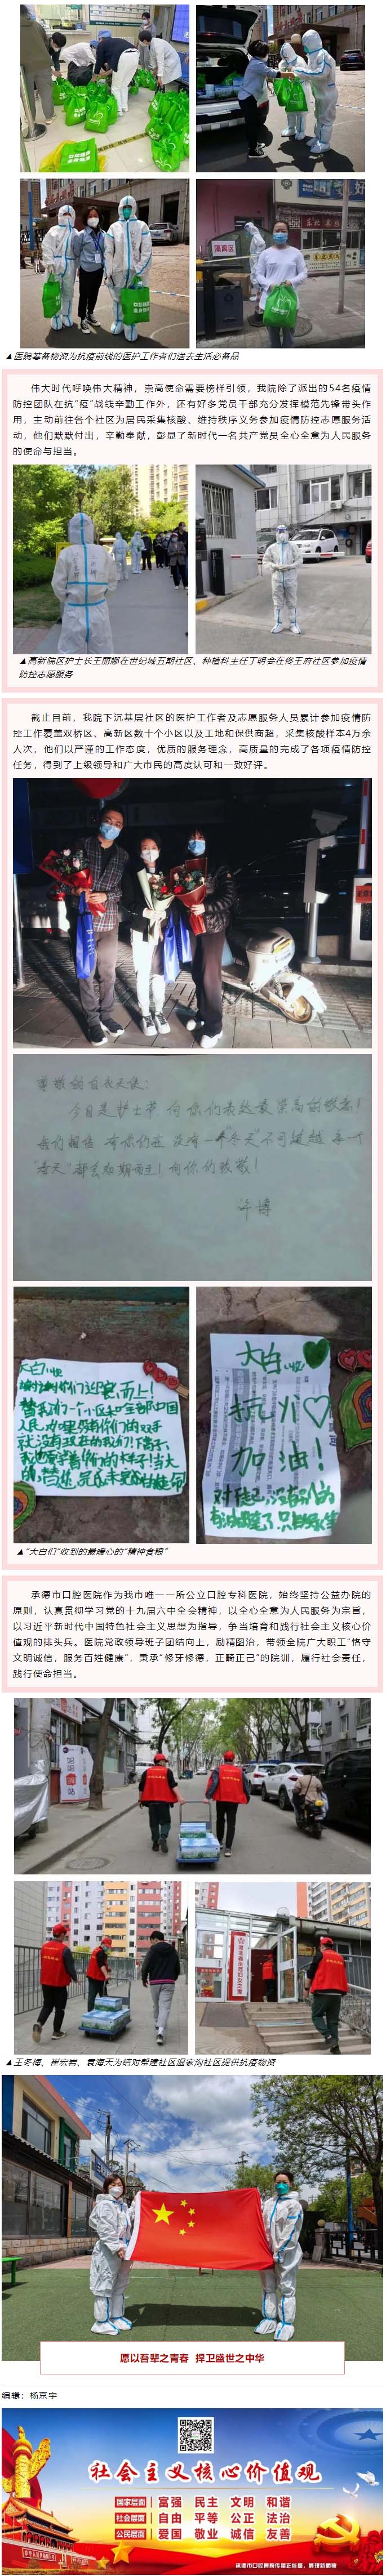 ▲医院筹备物资为抗疫前线的医护工作者们送去生活必备品
伟大时代呼唤伟大精神，崇高使命需要榜样引领，我院除了派出的54名疫情
防控团队在抗“疫”战线辛勤工作外，还有好多党员干部充分发挥模范先锋带头作
用，主动前往各个社区为居民采集核酸、维持秩序义务参加疫情防控志愿服务活
动，他们默默付出，辛勤奉献，彰显了新时代一名共产党员全心全意为人民服务
的使命与担当。
▲高新院区护士长王丽娜在世纪城五期社区、种植科主任丁明会在佟王府社区参加疫情
防控志愿服务
截止目前，我院下沉基层社区的医护工作者及志愿服务人员累计参加疫情防
控工作覆盖双桥区、高新区数十个小区以及工地和保供商超，采集核酸样本4万余
人次，他们以严谨的工作态度，优质的服务理念，高质量的完成了各项疫情防控
任务，得到了上级领导和广大市民的高度认可和一致好评。
尊敬的白衣天使：
今日是护士节，向你们表达最崇高的敬意！
我们相信，有你们在，没有一个“冬天”不可逾越，每一个
“春天”都会如期而至！向你们致敬！
许博
大白
大白
抗火
加油！
▲“大白们”收到的最暖心的“精神食粮”
承德市口腔医院作为我市唯一一所公立口腔专科医院，始终坚持公益办院的
原则，认真贯彻学习党的十九届六中全会精神，以全心全意为人民服务为宗旨，
以习近平新时代中国特色社会主义思想为指导，争当培育和践行社会主义核心价
值观的排头兵。医院党政领导班子团结向上，励精图治，带领全院广大职工“恪守
文明诚信，服务百姓健康”，秉承“修牙修德，正畸正己”的院训，履行社会责任，
践行使命担当。
▲王冬梅、崔宏岩、袁海天为结对帮建社区温家沟社区提供抗疫物资
愿以吾辈之青春 捍卫盛世之中华
编辑：杨京宇
社会主义核心价值观
国家层面 富强 民主 文明 和谐
社会层面 自由 平等 公正 法治
公民层面 爱国 敬业 诚信 友善